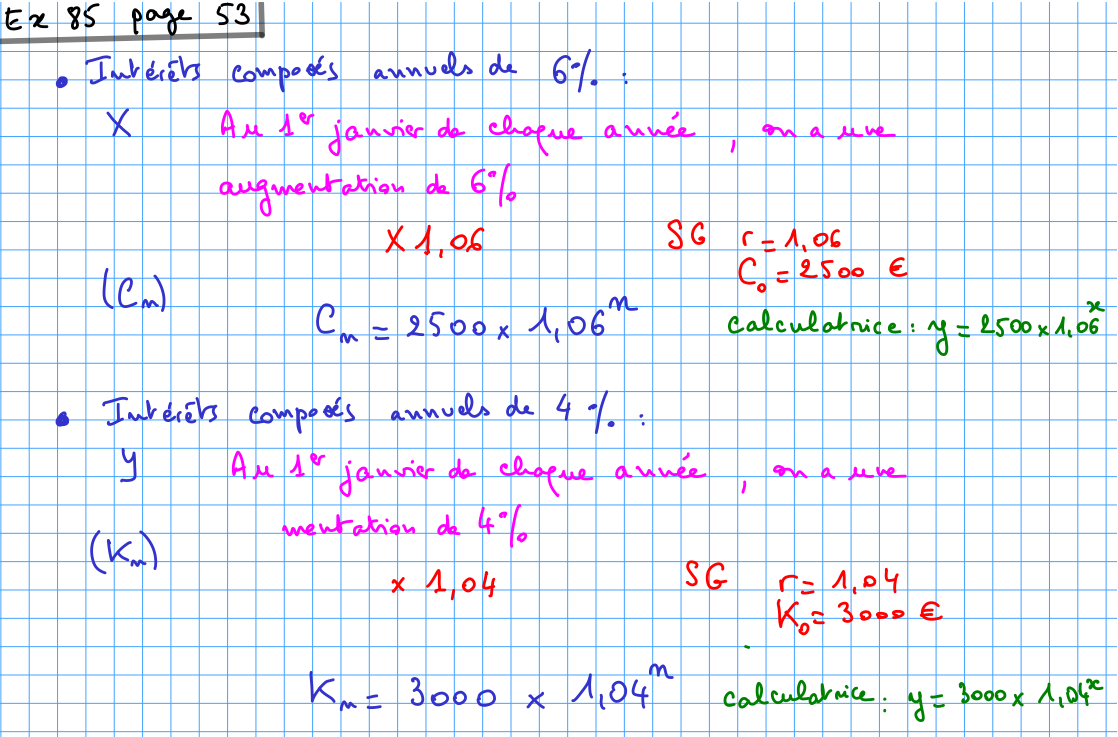 Ex 85 page 53
• Intérêts composés annuels de 6% :
X Au 1er janvier de chaque année, on a une
augmentation de 6%
× 1,06 SG r = 1,06
C0 = 2500 €
(Cn)
Cn = 2500 × 1,06^n calculatrice : y = 2500 × 1,06^x
• Intérêts composés annuels de 4 % :
Y Au 1er janvier de chaque année, on a une
mentation de 4%
(Kn)
× 1,04 SG r = 1,04
K0 = 3000 €
Kn = 3000 × 1,04^n calculatrice : y = 3000 × 1,04^x